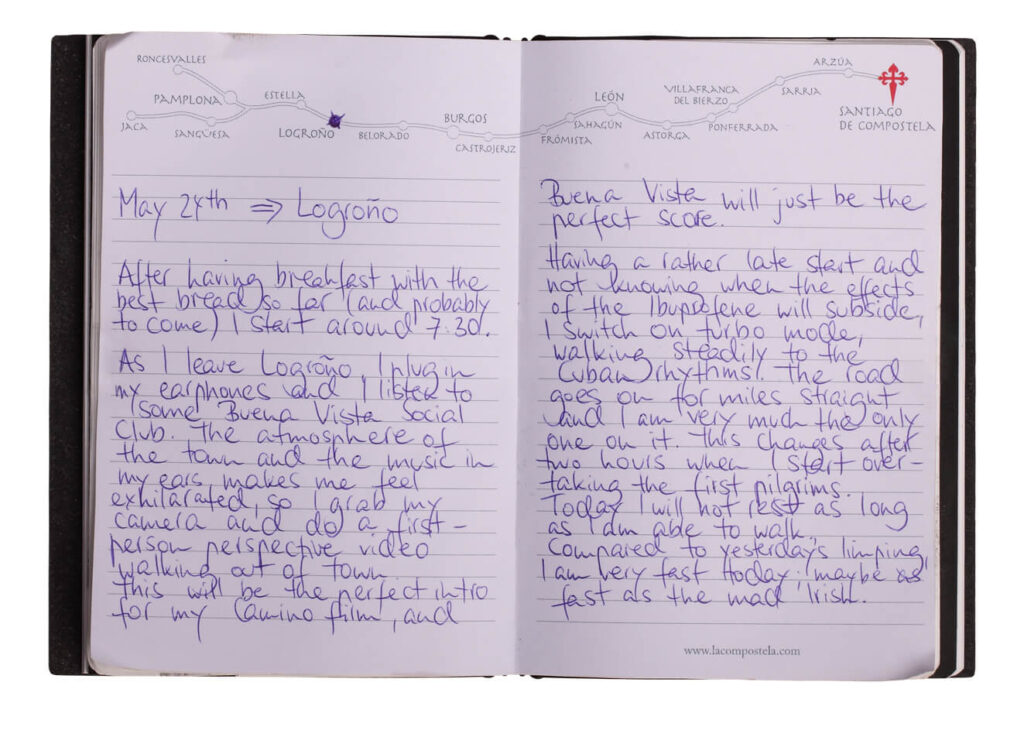 RONCESVALLES
PAMPLONA
JACA
SANGÜESA
ESTELLA
LOGROÑO
BELORADO
BURGOS
CASTROJERIZ
May 24th ⇒ Logroño
After having breakfast with the
best bread so far (and probably
to come) I start around 7:30.
As I leave Logroño, I plug in
my earphones and I listen to
some Buena Vista Social
Club. The atmosphere of
the town and the music in
my ears, makes me feel
exhilarated, so I grab my
camera and do a first-
person perspective video
walking out of town.
This will be the perfect intro
for my Camino film, and
FRÓMISTA
SAHAGÚN
LEÓN
ASTORGA
VILLAFRANCA
DEL BIERZO
PONFERRADA
SARRIA
ARZÚA
SANTIAGO
DE COMPOSTELA
Buena Vista will just be the
perfect score.
Having a rather late start and
not knowing when the effects
of the Ibuprofene will subside,
I switch on turbo mode,
walking steadily to the
Cuban rhythms! The road
goes on for miles straight
and I am very much the only
one on it. This changes after
two hours when I start over-
taking the first pilgrims.
Today I will not rest as long
as I am able to walk.
Compared to yesterday's limping,
I am very fast today; maybe as
fast as the mad Irish.
www.lacompostela.com